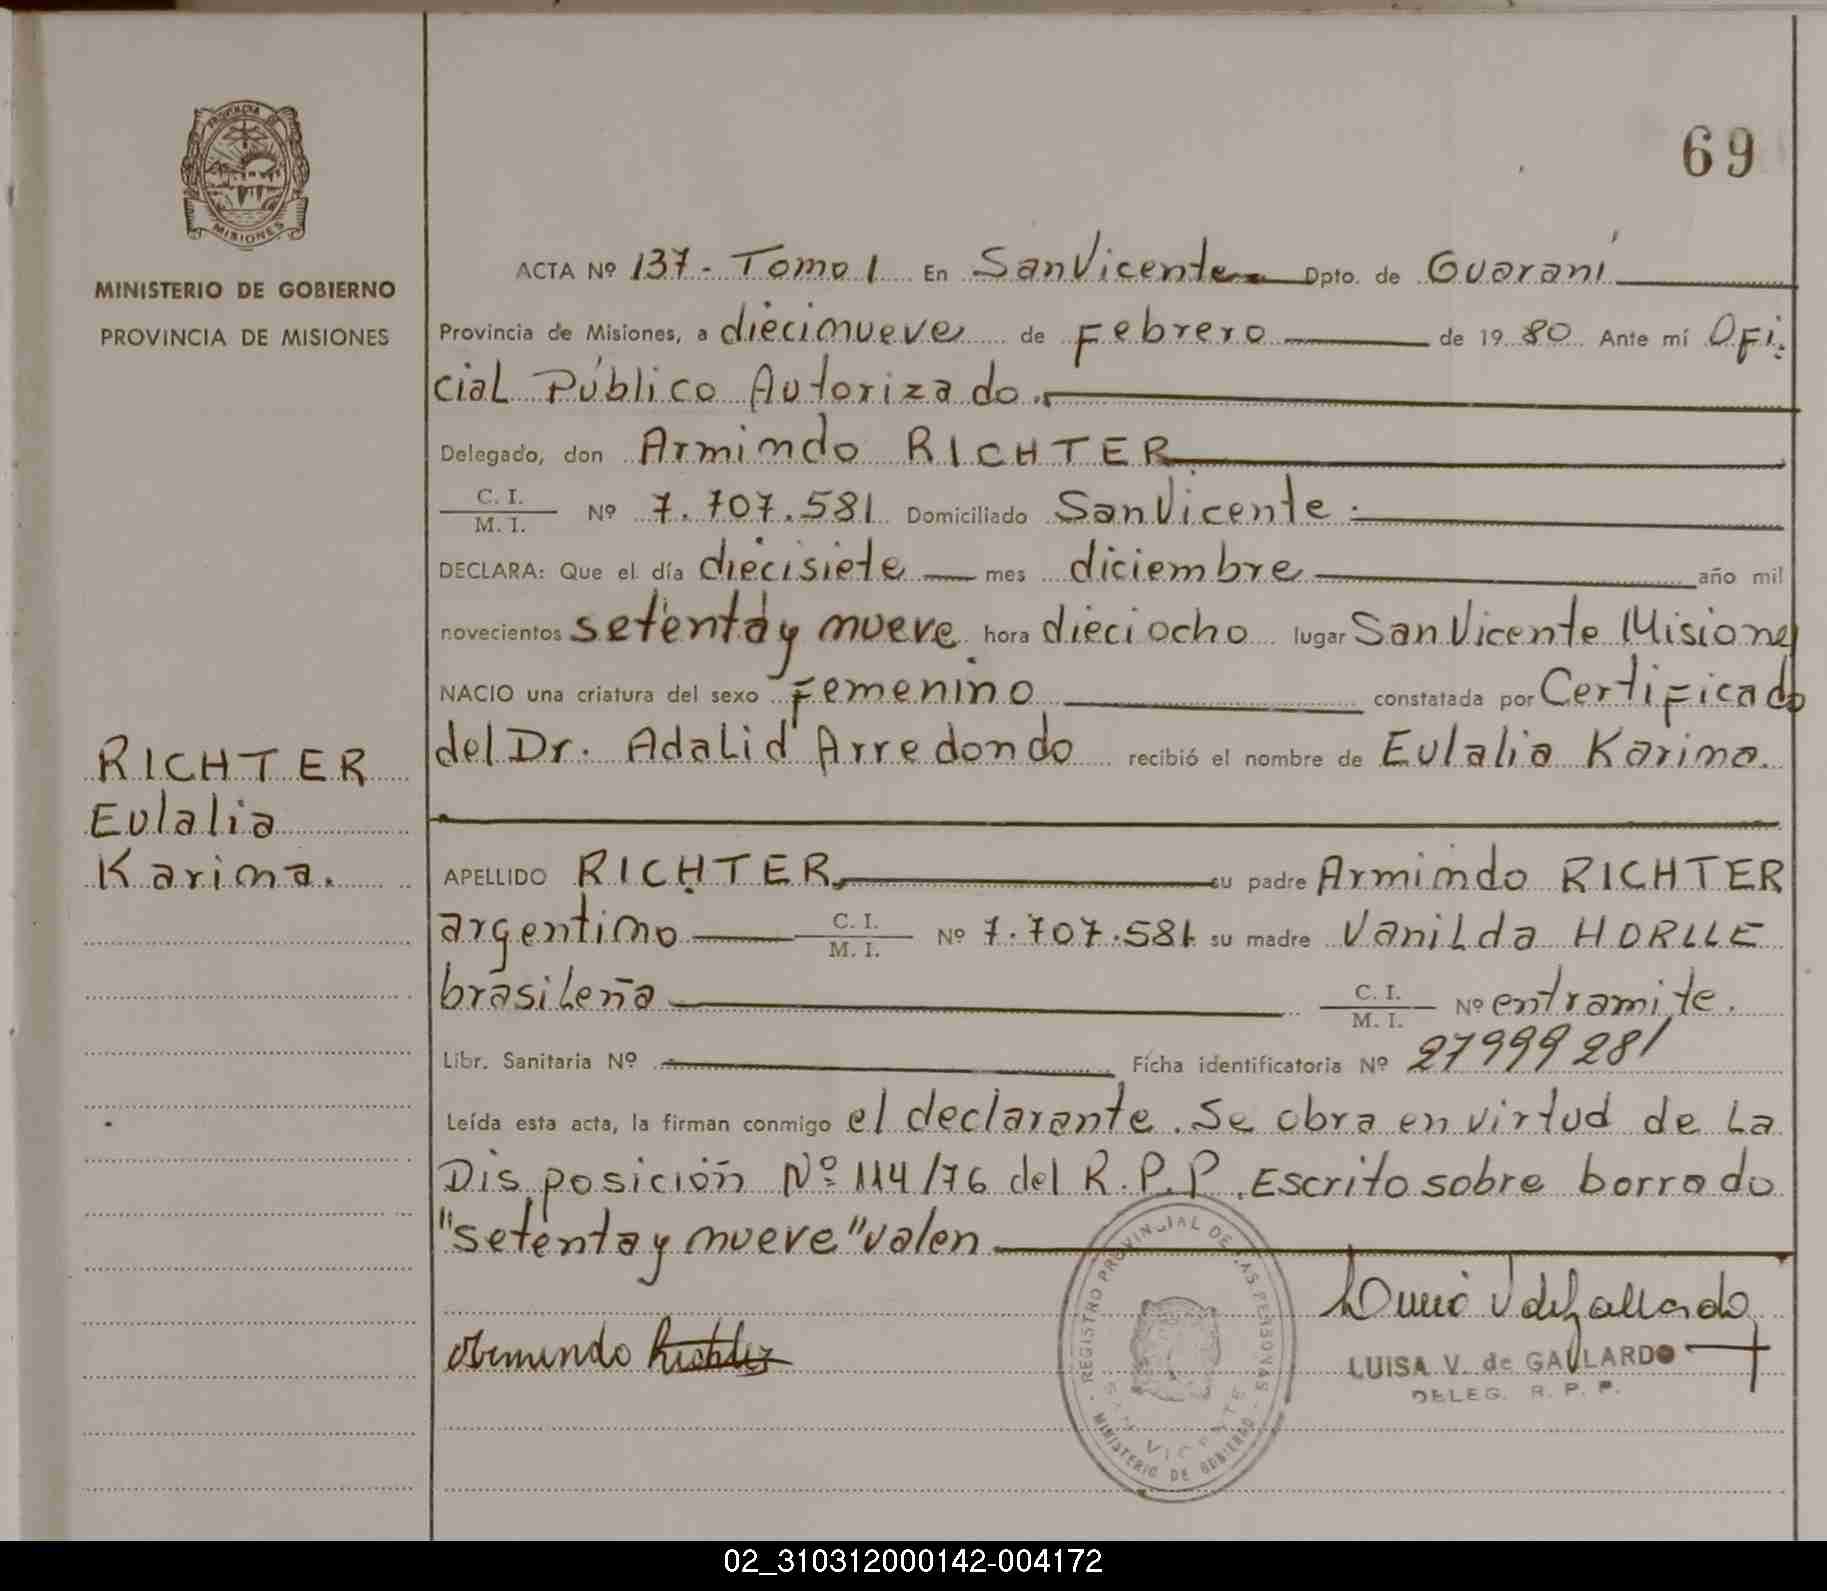 69
PROVINCIA DE
MISIONES
MINISTERIO DE GOBIERNO
PROVINCIA DE MISIONES
ACTA Nº 137 - Tomo 1 En San Vicente Dpto. de Guaraní
Provincia de Misiones, a diecinueve de Febrero de 1980 Ante mí Ofi-
cial Público Autorizado.
Delegado, don Armindo RICHTER
C. I.
M. I. Nº 7.707.581 Domiciliado San Vicente.
DECLARA: Que el día diecisiete mes diciembre año mil
novecientos setenta y nueve hora dieciocho lugar San Vicente Misiones
NACIO una criatura del sexo Femenino constatada por Certificado
del Dr. Adalid Arredondo recibió el nombre de Eulalia Karina.
RICHTER
Eulalia
Karina.
APELLIDO RICHTER su padre Armindo RICHTER
argentino C. I. M. I. Nº 7.707.581 su madre Vanilda HORLLE
brasileña C. I. M. I. Nº en tramite.
Libr. Sanitaria Nº Ficha identificatoria Nº 27999281
Leída esta acta, la firman conmigo el declarante. Se obra en virtud de La
Disposición Nº 114/76 del R.P.P. Escrito sobre borrado
"setenta y nueve" valen
REGISTRO PROVINCIAL DE LAS PERSONAS
SAN VICENTE
MINISTERIO DE GOBIERNO
Armindo Richter
LUISA V. de GALLARDO
DELEG. R. P. P.
02_310312000142-004172